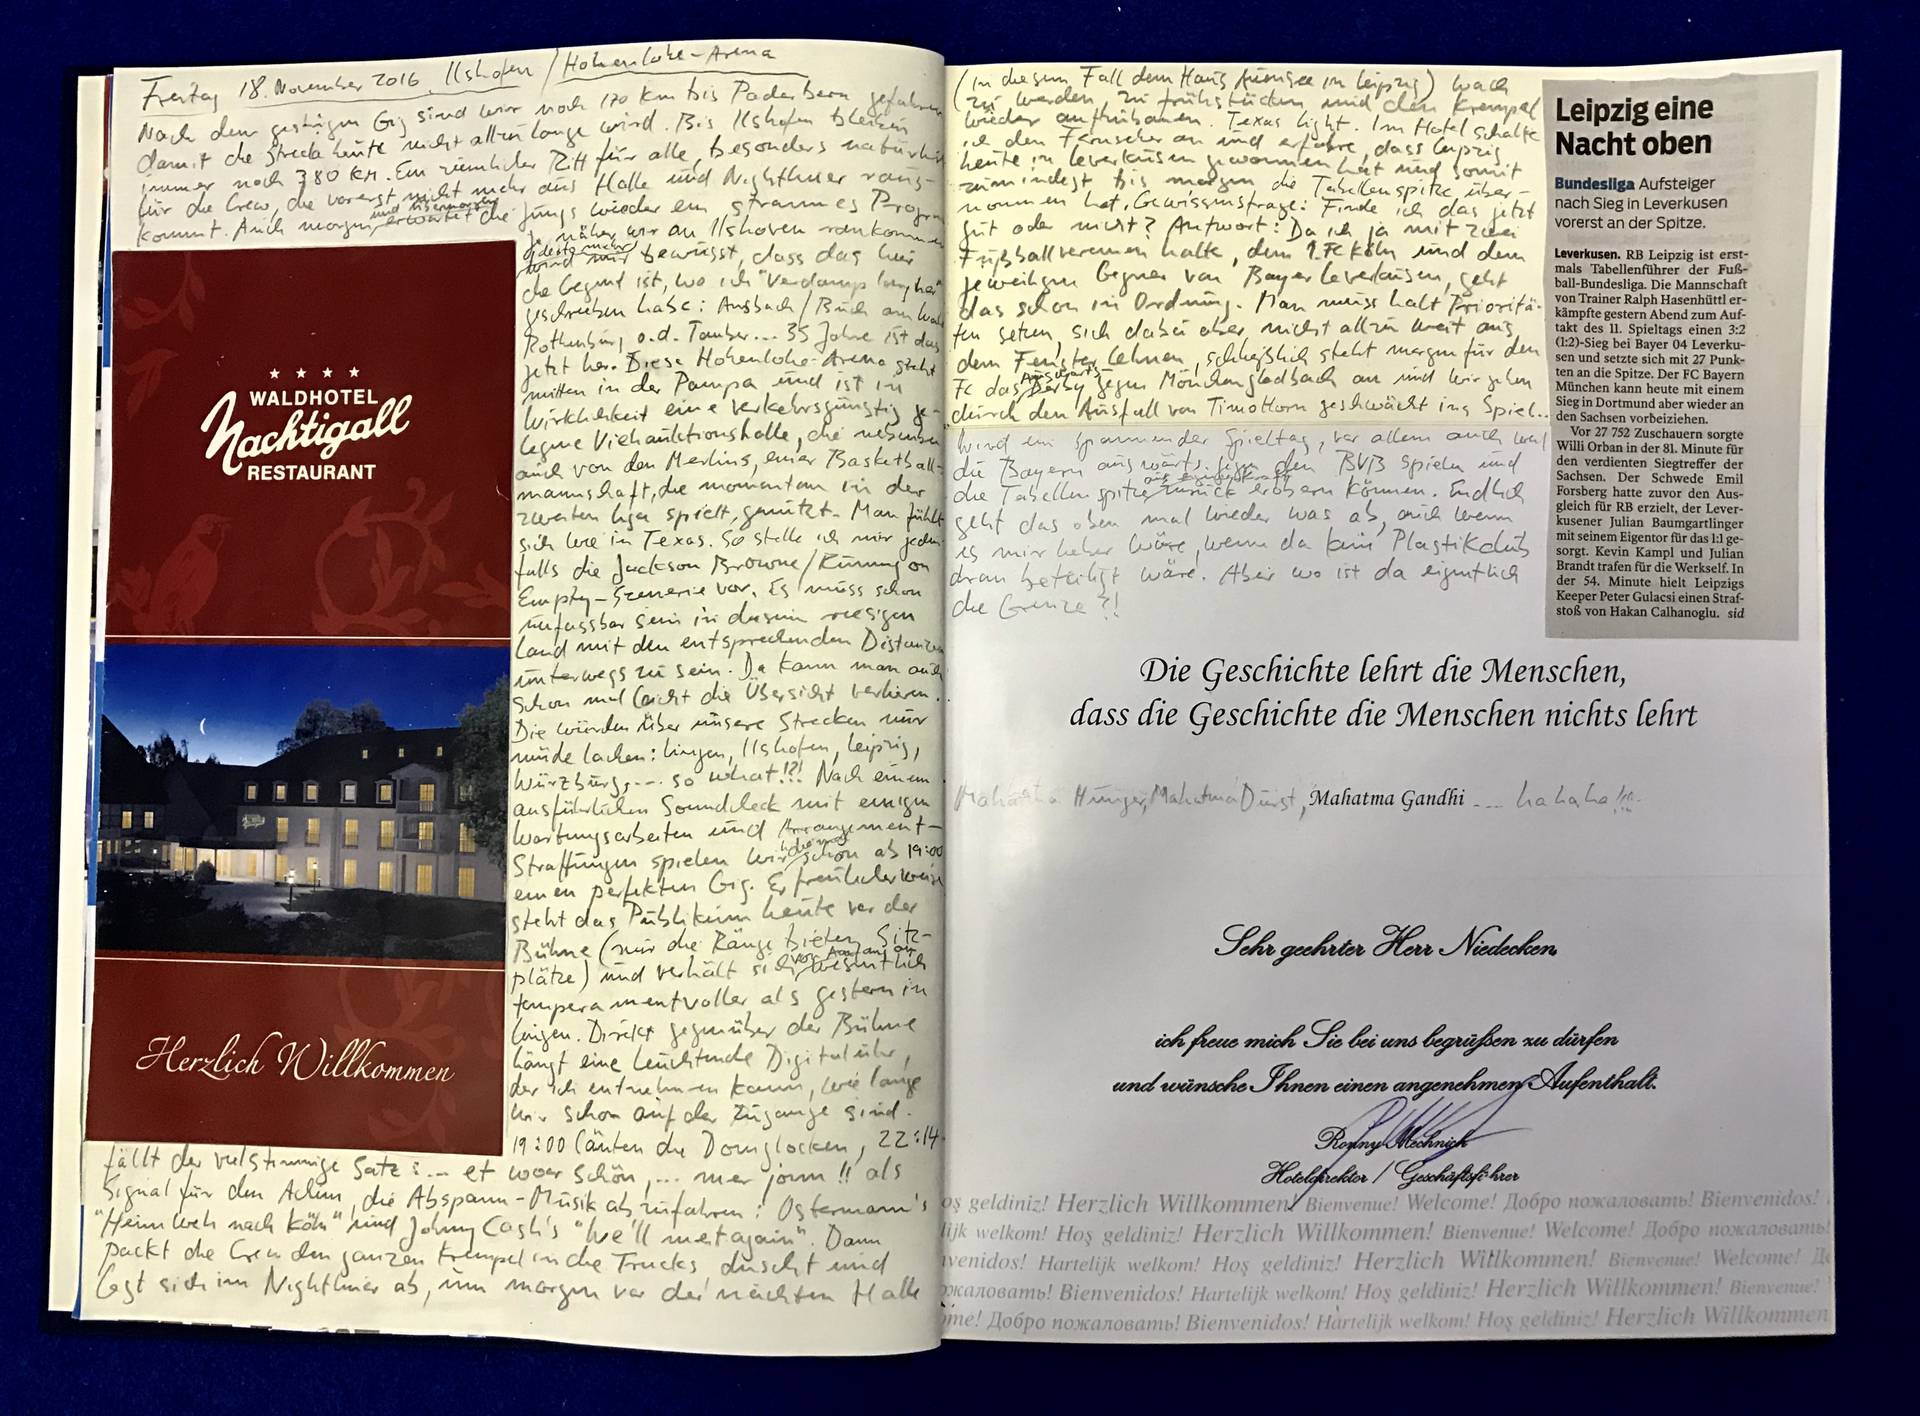 Freitag 18. November 2016, Ilshofen / Hohenlohe-Arena
Nach dem gestrigen Gig sind wir noch 170 km bis Paderborn gefahren
damit die Strecke heute nicht allzu lange wird. Bis Ilshofen bleiben
immer noch 380 KM. Ein ziemlicher Ritt für alle, besonders natürlich
für die Crew, die vorerst nicht mehr aus Halle und Nightliner raus-
kommt. Auch morgen und übermorgen erwartet die Jungs wieder ein strammes Progr
Je näher wir an Ilshoven rankommen
desto mehr wird mir bewusst, dass das hier
die Gegend ist, wo ich "Verdamp lang her"
geschrieben habe: Ansbach / Buch am Wald
Rothenburg o.d. Tauber... 35 Jahre ist das
jetzt her. Diese Hohenlohe-Arena steht
mitten in der Pampa und ist in
Wirklichkeit eine verkehrsgünstig ge-
legene Viehauktionshalle, die nebenbei
auch von den Merlins, einer Basketball-
mannschaft, die momentan in der
zweiten Liga spielt, genutzt. Man fühlt
sich wie in Texas. So stelle ich mir jeden-
falls die Jackson Browne / Running on
Empty-Szenerie vor. Es muss schon
unfassbar sein in diesem riesigen
Land mit den entsprechenden Distanzen
unterwegs zu sein. Da kann man auch
schon mal leicht die Übersicht verlieren.
Die würden über unsere Strecken nur
müde lachen: Lingen, Ilshofen, Leipzig,
Würzburg,... so what!?! Nach einem
ausführlichen Soundcheck mit einigen
Wartungsarbeiten und Arrangement-
Straffungen spielen wir schon ab 19:00
einen perfekten Gig. Erfreulicherweise
steht das Publikum heute vor der
Bühne (nur die Ränge bieten Sitz-
plätze) und verhält sich von Anfang an wesentlich
temperamentvoller als gestern in
Lingen. Direkt gegenüber der Bühne
hängt eine leuchtende Digitaluhr,
der ich entnehmen kann, wie lange
wir schon auf der Zugange sind.
19:00 läuten die Domglocken, 22:14
fällt der vielstimmige Satz: ... et woor schön, ... mer jonn!! als
Signal für den Achim, die Abspann-Musik abzufahren: Ostermann's
"Heimweh nach Köln" und Johnny Cash's "We'll meet again". Dann
packt die Crew den ganzen Krempel in die Trucks duscht und
legt sich im Nightliner ab, um morgen vor der nächsten Halle
★ ★ ★ ★
WALDHOTEL
Nachtigall
RESTAURANT
Herzlich Willkommen
(In diesem Fall dem Haus Auensee in Leipzig) wach
zu werden, zu frühstücken und den Krempel
wieder aufzubauen. Texas light. Im Hotel schalte
ich den Fernseher an und erfahre, dass Leipzig
heute in Leverkusen gewonnen hat und somit
zumindest bis morgen die Tabellenspitze über-
nommen hat. Gewissensfrage: Finde ich das jetzt
gut oder nicht? Antwort: Da ich ja mit zwei
Fußballvereinen halte, dem 1. FC Köln und dem
jeweiligen Gegner von Bayer Leverkusen, geht
das schon in Ordnung. Man muss halt Prioritä-
ten setzen, sich dabei aber nicht allzu weit aus
dem Fenster lehnen, schließlich steht morgen für den
FC das Auswärts Derby gegen Mönchengladbach an und wir gehen
durch den Ausfall von Timo Horn geschwächt ins Spiel..
Wird ein spannender Spieltag, vor allem auch weil
die Bayern auswärts gegen den BVB spielen und
die Tabellenspitze aus eigener Kraft zurück erobern können. Endlich
geht das oben mal wieder was ab, auch wenn
es mir lieber wäre, wenn da kein Plastikclub
dran beteiligt wäre. Aber wo ist da eigentlich
die Grenze?!
Leipzig eine
Nacht oben
Bundesliga Aufsteiger
nach Sieg in Leverkusen
vorerst an der Spitze.
Leverkusen. RB Leipzig ist erst-
mals Tabellenführer der Fuß-
ball-Bundesliga. Die Mannschaft
von Trainer Ralph Hasenhüttl er-
kämpfte gestern Abend zum Auf-
takt des 11. Spieltags einen 3:2
(1:2)-Sieg bei Bayer 04 Leverku-
sen und setzte sich mit 27 Punk-
ten an die Spitze. Der FC Bayern
München kann heute mit einem
Sieg in Dortmund aber wieder an
den Sachsen vorbeiziehen.
Vor 27 752 Zuschauern sorgte
Willi Orban in der 81. Minute für
den verdienten Siegtreffer der
Sachsen. Der Schwede Emil
Forsberg hatte zuvor den Aus-
gleich für RB erzielt, der Lever-
kusener Julian Baumgartlinger
mit seinem Eigentor für das 1:1 ge-
sorgt. Kevin Kampl und Julian
Brandt trafen für die Werkself. In
der 54. Minute hielt Leipzigs
Keeper Peter Gulacsi einen Straf-
stoß von Hakan Calhanoglu. sid
Die Geschichte lehrt die Menschen,
dass die Geschichte die Menschen nichts lehrt
Mahatma Hunger, Mahatma Durst, Mahatma Gandhi ... hahaha!!!
Sehr geehrter Herr Niedecken,
ich freue mich Sie bei uns begrüßen zu dürfen
und wünsche Ihnen einen angenehmen Aufenthalt.
Ronny Mechnich
Hoteldirektor / Geschäftsführer
oş geldiniz! Herzlich Willkommen! Bienvenue! Welcome! Добро пожаловать! Bienvenidos!
lijk welkom! Hoş geldiniz! Herzlich Willkommen! Bienvenue! Welcome! Добро пожаловать!
venidos! Hartelijk welkom! Hoş geldiniz! Herzlich Willkommen! Bienvenue! Welcome! До
ожаловать! Bienvenidos! Hartelijk welkom! Hoş geldiniz! Herzlich Willkommen! Bienvenue!
ome! Добро пожаловать! Bienvenidos! Hartelijk welkom! Hoş geldiniz! Herzlich Willkommen